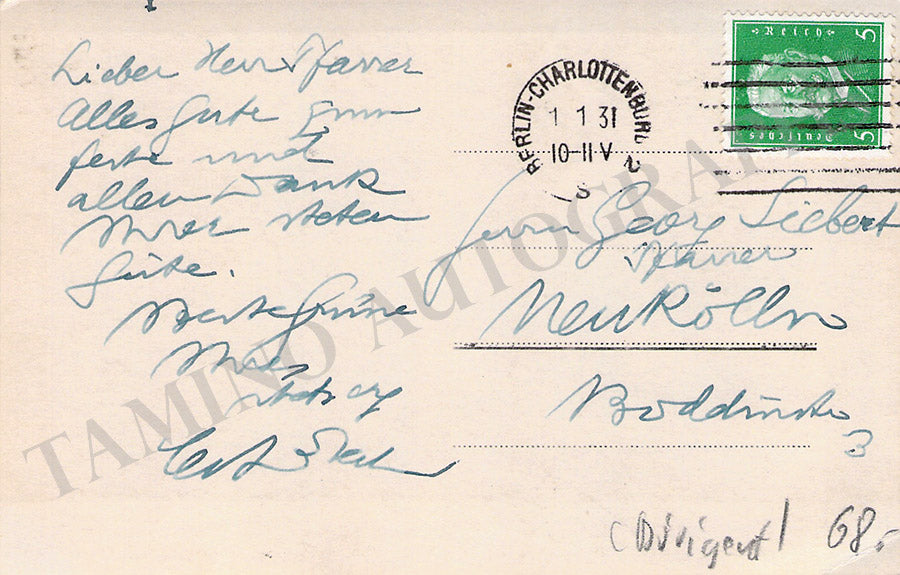 Lieber Herr Pfarrer
Alles Gute zum
feste und
allen Dank
Ihrer steten
Güte.
Ihres
stets
Herrn Georg Siebert
Pfarrer
Neukölln
Boddinstr
3
BERLIN-CHARLOTTENBURG 2
1 1 31
10-11 V
S
Deutsches Reich
5 5
(Dirigent) 68.-
TAMINO AUTOGRAPHS